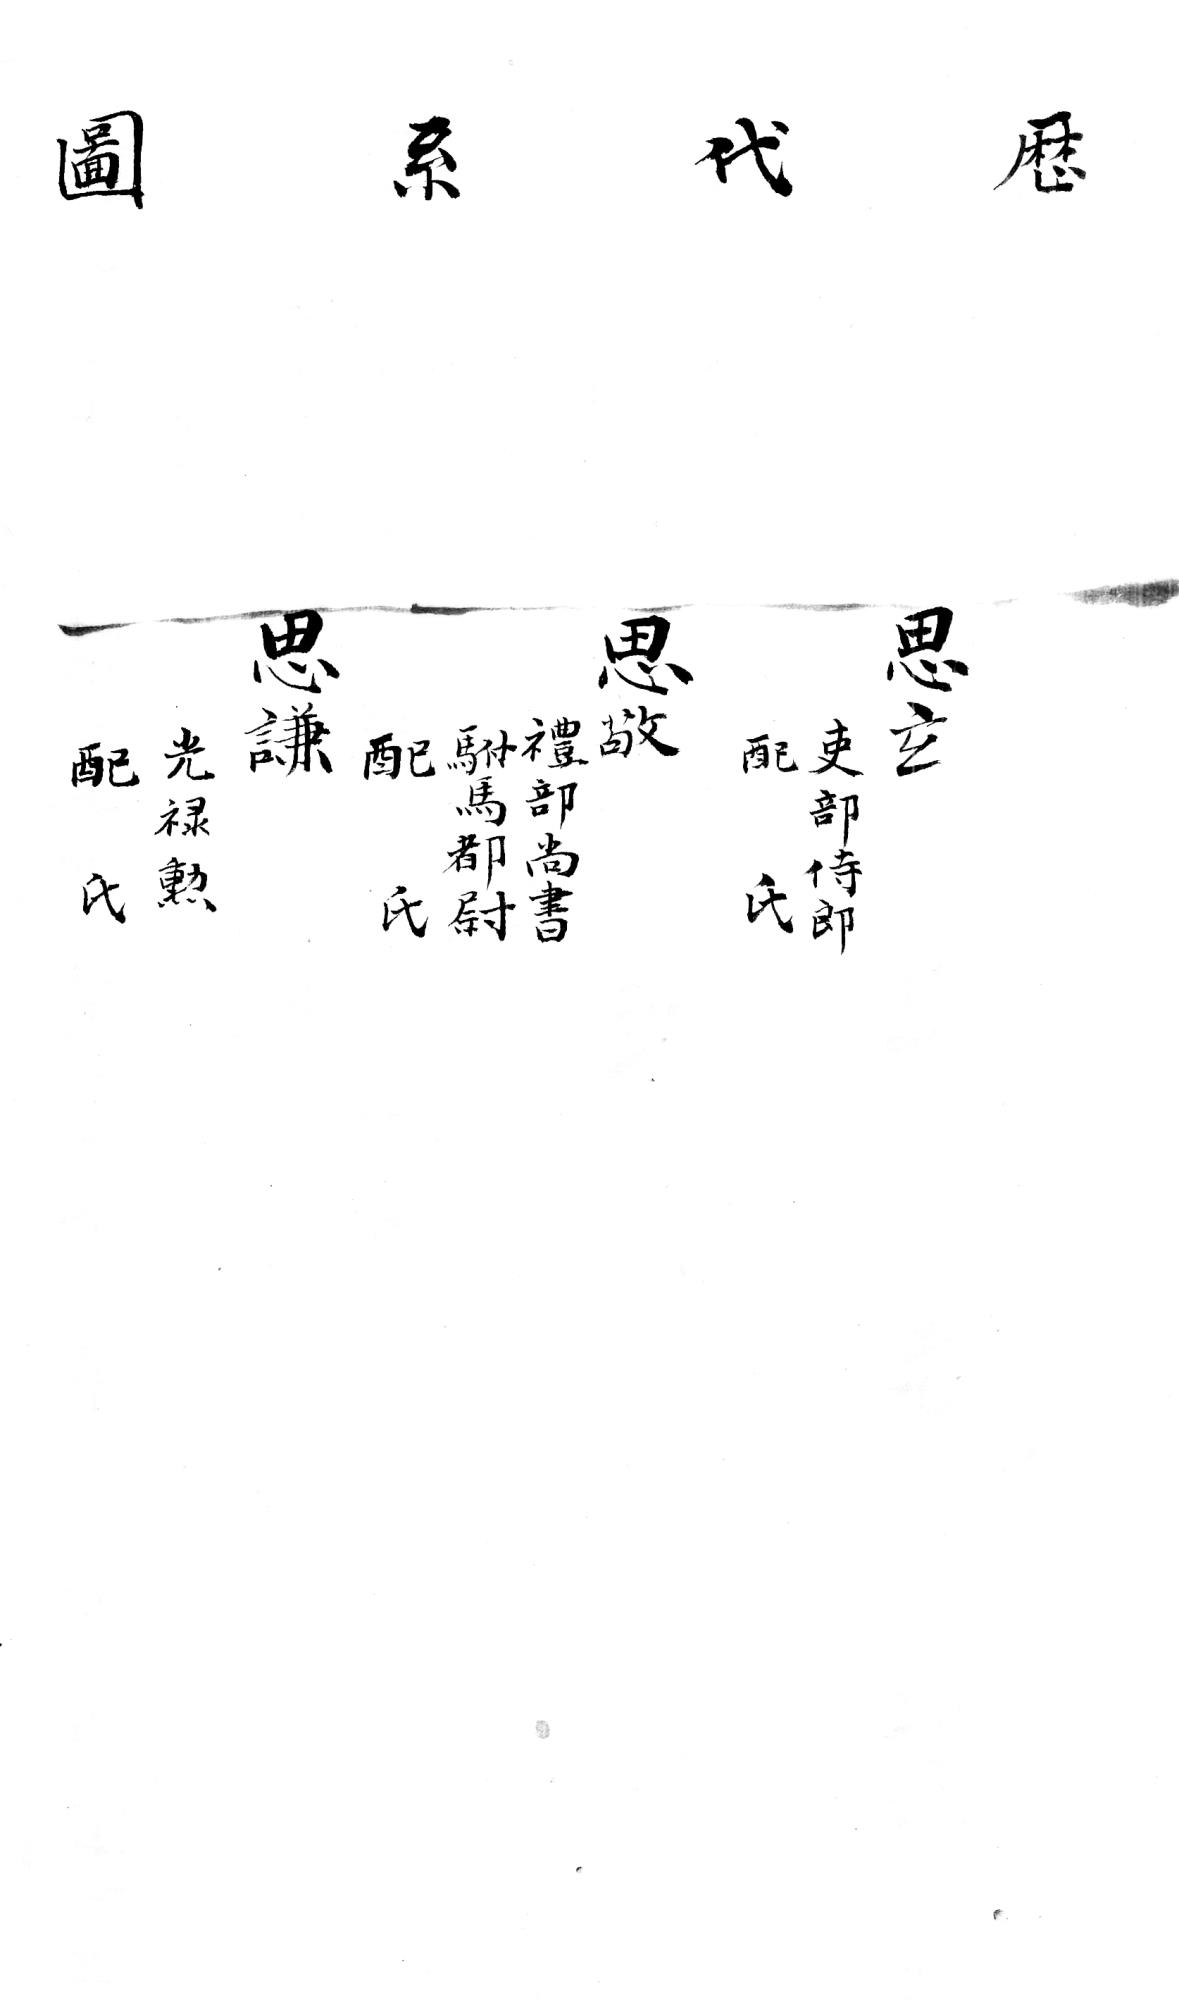 歴代系圖
思立
吏部侍郎
配 氏
思敬
禮部尚書
駙馬都尉
配 氏
思謙
光禄勲
配 氏